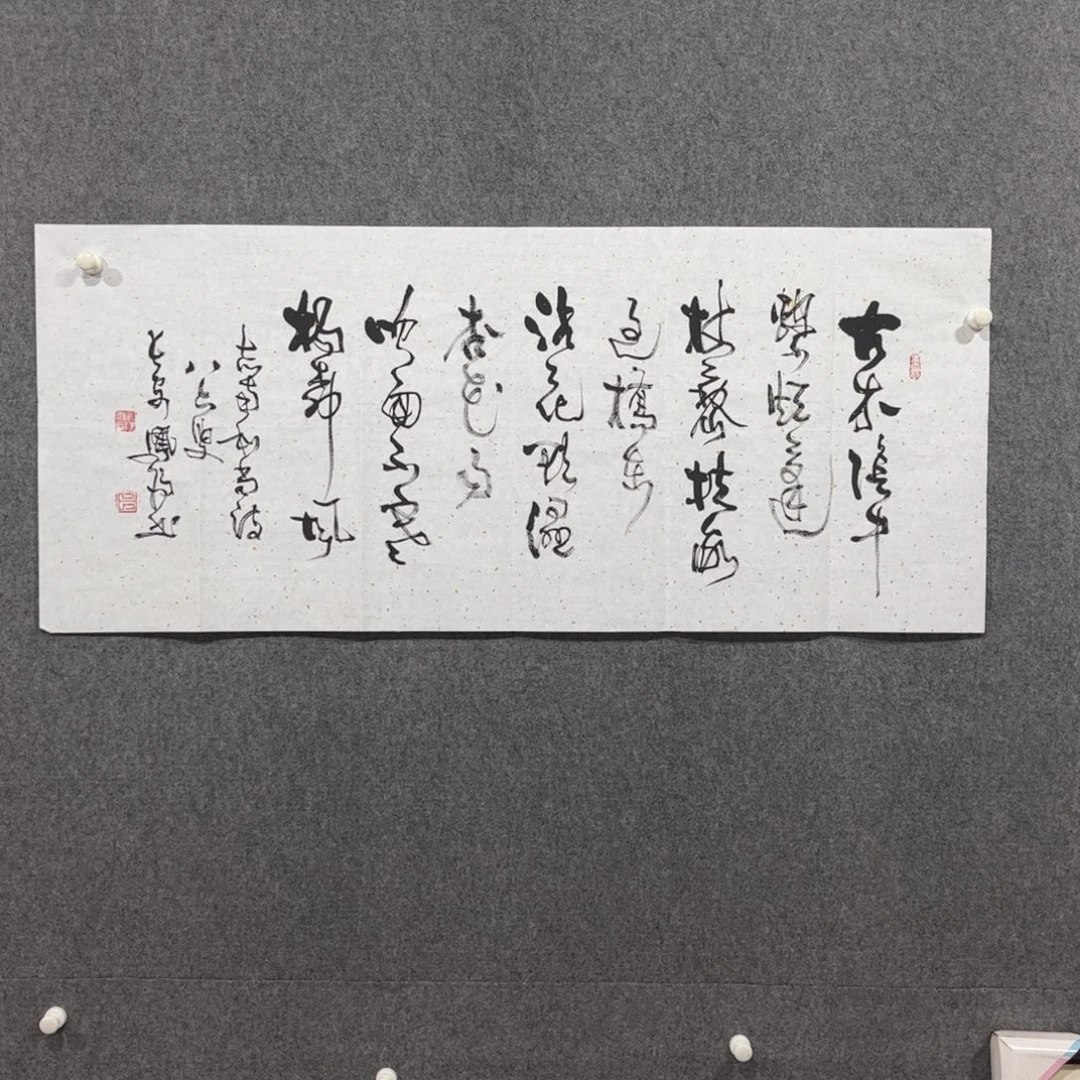 古木陰中
繫短篷
杖藜扶我
過橋東
沾衣欲濕
杏花雨
吹面不寒
楊柳風
志南和尚詩
八七叟
長安